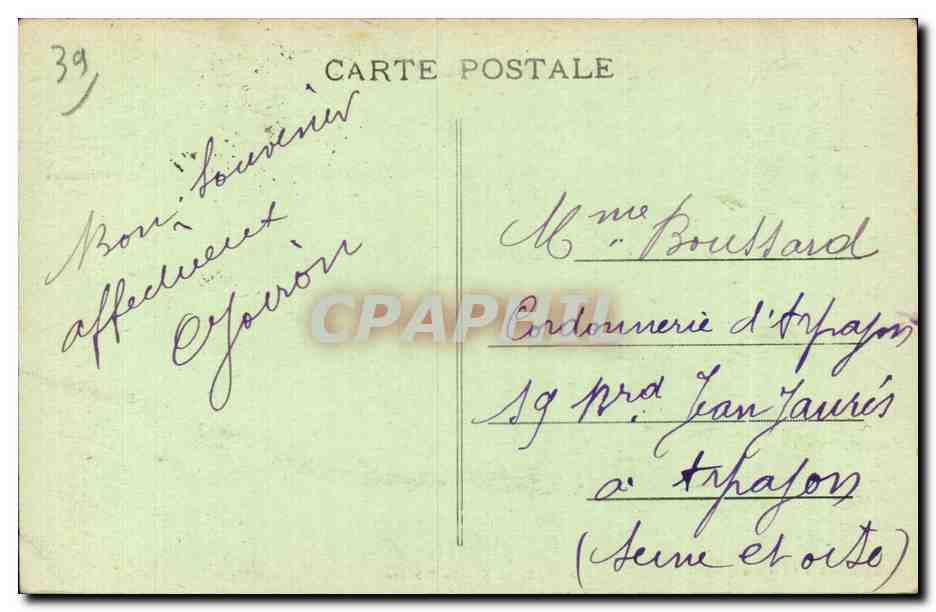 39
CARTE POSTALE
Bon Souvenir
affectueux
CPAPHIL
Mme Boussard
Cordonnerie d'Arpajon
19 Brd Jean Jaurés
à Arpajon
(Seine et oise)